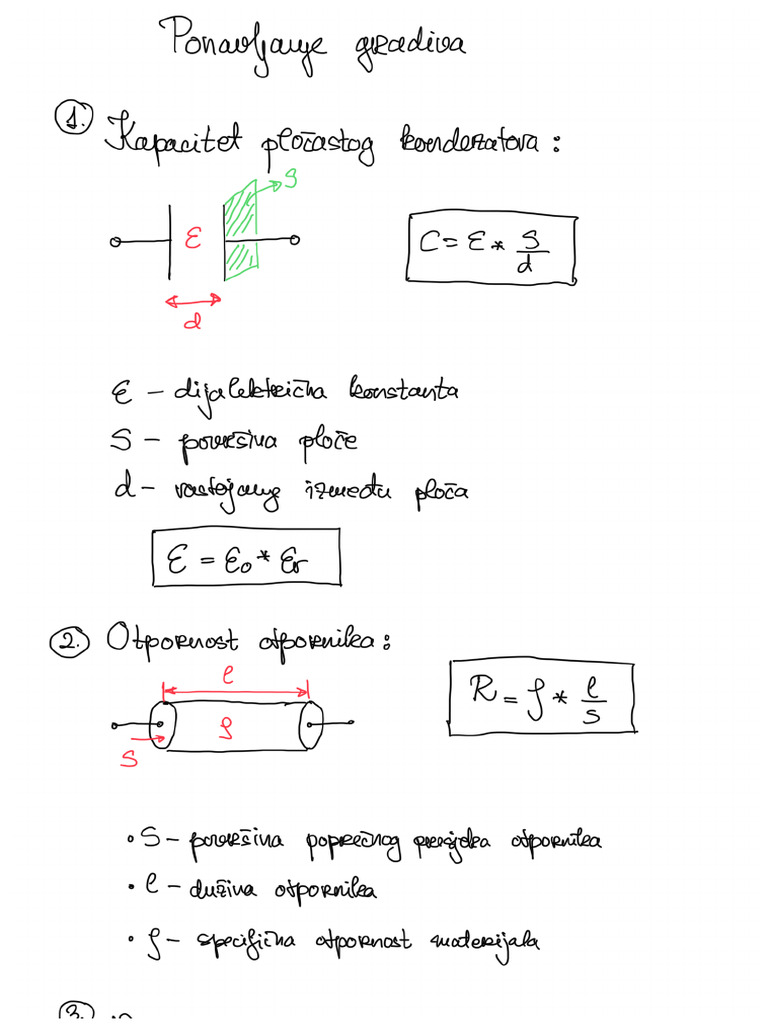 Ponavljanje gradiva
1. Kapacitet pločastog kondezatora:
S
ε
C = ε * S/d
d
ε - dijalektrična konstanta
S - površina ploče
d - rastojanje između ploča
ε = ε₀ * εr
2. Otpornost otpornika:
l
R = ρ * l/S
ρ
S
• S - površina poprečnog presjeka otpornika
• l - dužina otpornika
• ρ - specifična otpornost materijala
3.